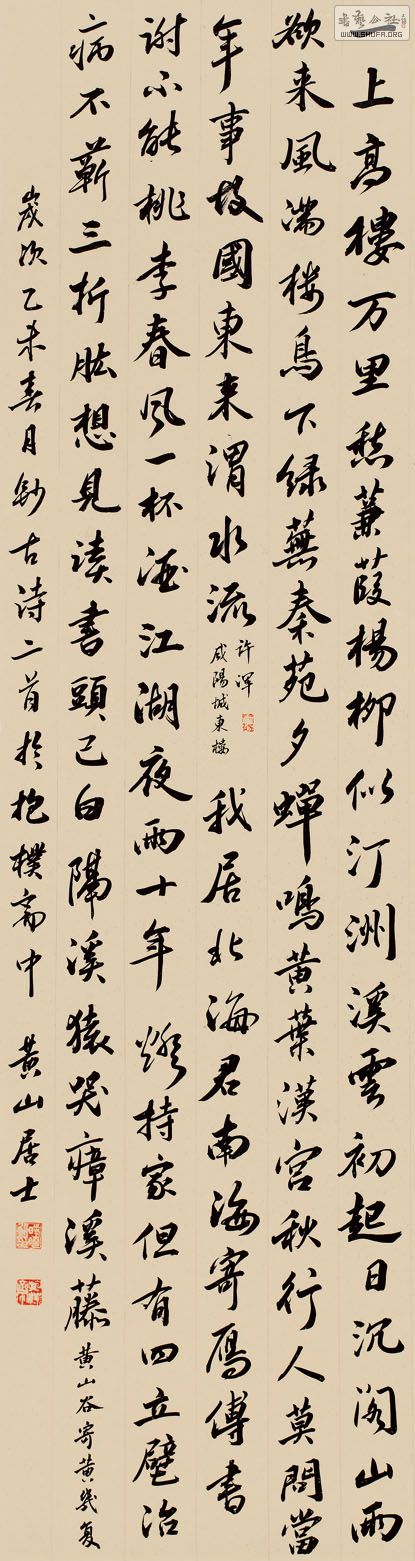 上高樓万里愁蒹葭楊柳似汀洲溪雲初起日沉閣山雨
欲来風满楼鳥下緑蕪秦苑夕蟬鳴黄葉漢宮秋行人莫問當
年事故國東来渭水流
许渾
咸陽城東楼
我居北海君南海寄雁傳書
谢不能桃李春风一杯酒江湖夜雨十年燈持家但有四立壁治
病不蕲三折肱想見读書頭已白隔溪猿哭瘴溪藤
黄山谷寄黄幾复
歲次乙未春月鈔古诗二首於抱樸斋中 黄山居士
书艺公社
WWW.SHUFA.ORG